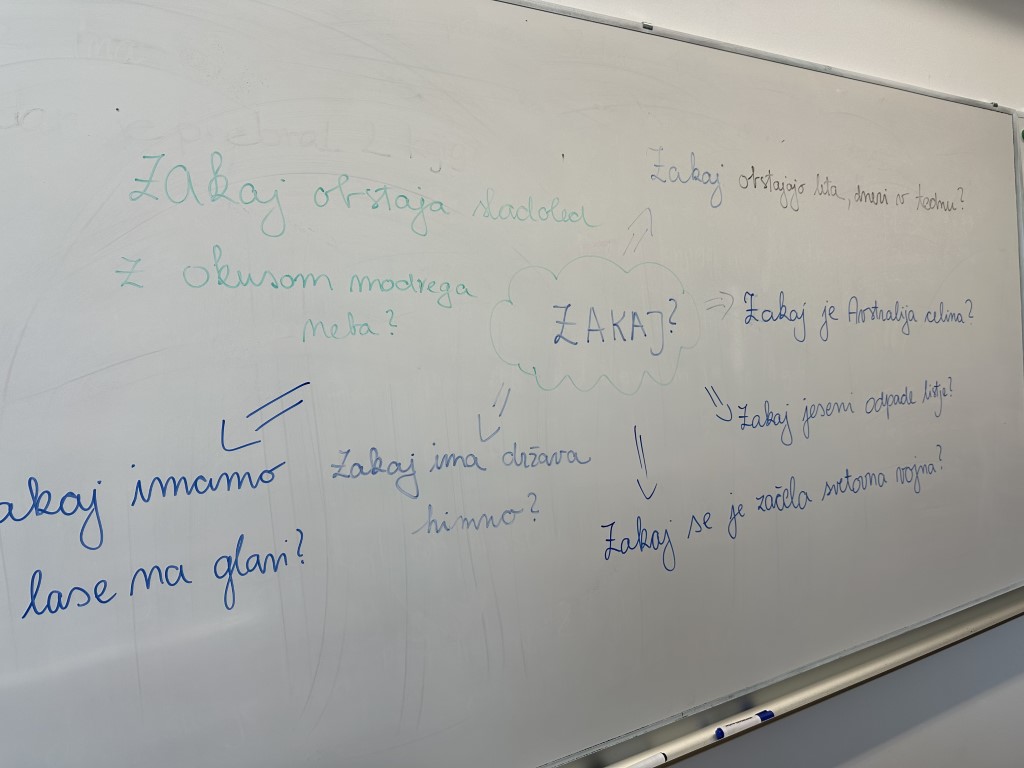 Zakaj obstaja sladoled
z okusom modrega
neba?
Zakaj obstajajo leta, dnevi v tednu?
ZAKAJ?
Zakaj je Avstralija celina?
Zakaj jeseni odpade listje?
Zakaj se je začela svetovna vojna?
Zakaj ima država
himno?
akaj imamo
lase na glavi?